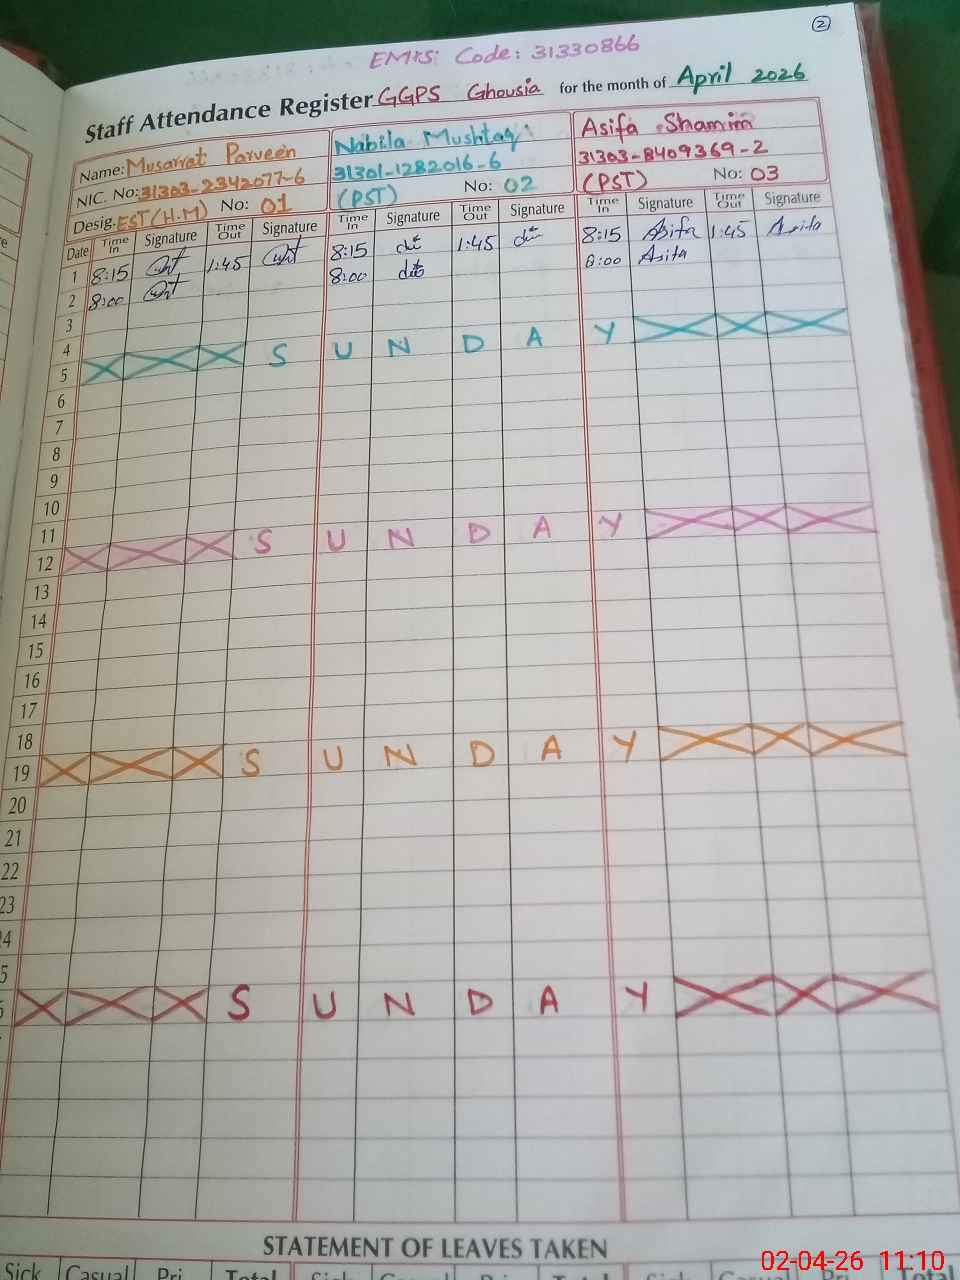 2
EMIS Code: 31330866
Staff Attendance Register GGPS Ghousia for the month of April 2026
Name: Musarrat Parveen Nabila Mushtaq Asifa Shamim
NIC. No: 31303-2342077-6 31301-1282016-6 31303-8409369-2
Desig. EST (H.M) No: 01 (PST) No: 02 (PST) No: 03
Date Time In Signature Time Out Signature Time In Signature Time Out Signature Time In Signature Time Out Signature
1 8:15 1:45 8:15 1:45 8:15 Asifa 1:45 Asifa
2 8:00 8:00 8:00 Asifa
3
4
5 S U N D A Y
6
7
8
9
10
11
12 S U N D A Y
13
14
15
16
17
18
19 S U N D A Y
20
21
22
23
24
5
6 S U N D A Y
STATEMENT OF LEAVES TAKEN
Sick Casual Pri Total Sick Casual Pri Total Sick Casual Pri Total
02-04-26 11:10